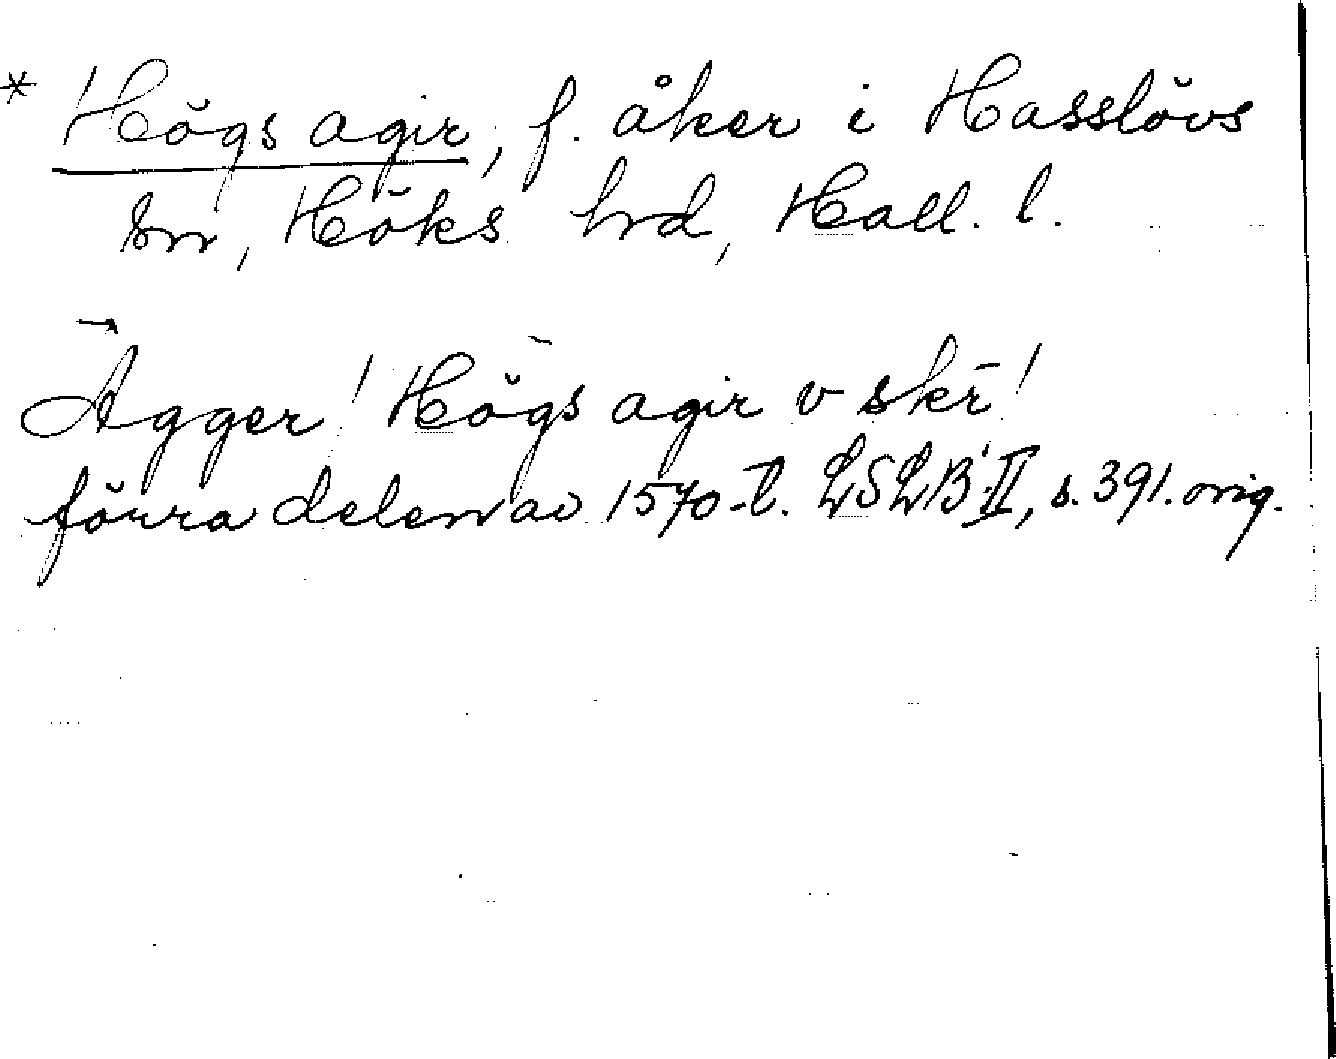 * Högs agir, f. åker i Hasslövs
sn, Höks hrd, Hall. l.
Ägger! Högs agir v skr!
förra delen av 1570-t. LSLB II, s. 391. orig.